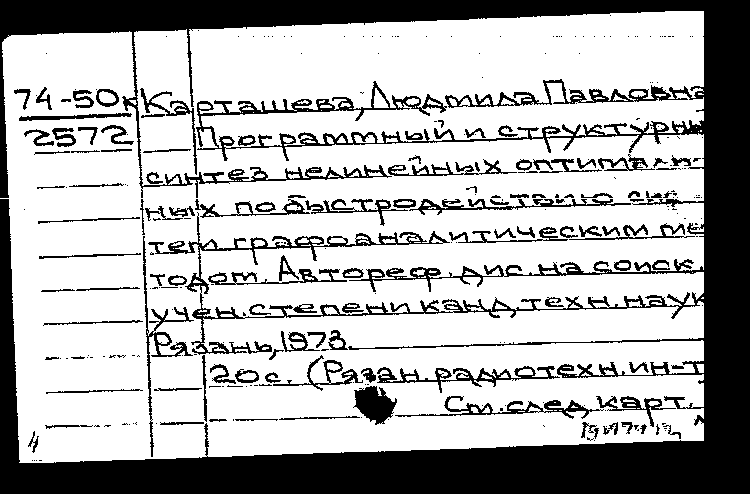 74-50к Карташева, Людмила Павловна
2572 Программный и структурны
синтез нелинейных оптималь-
ных по быстродействию сис-
тем графоаналитическим ме
тодом. Автореф. дис. на соиск.
учен. степени канд. техн. наук
Рязань, 1973.
20 с. (Рязан. радиотехн. ин-т
См. след. карт.
4